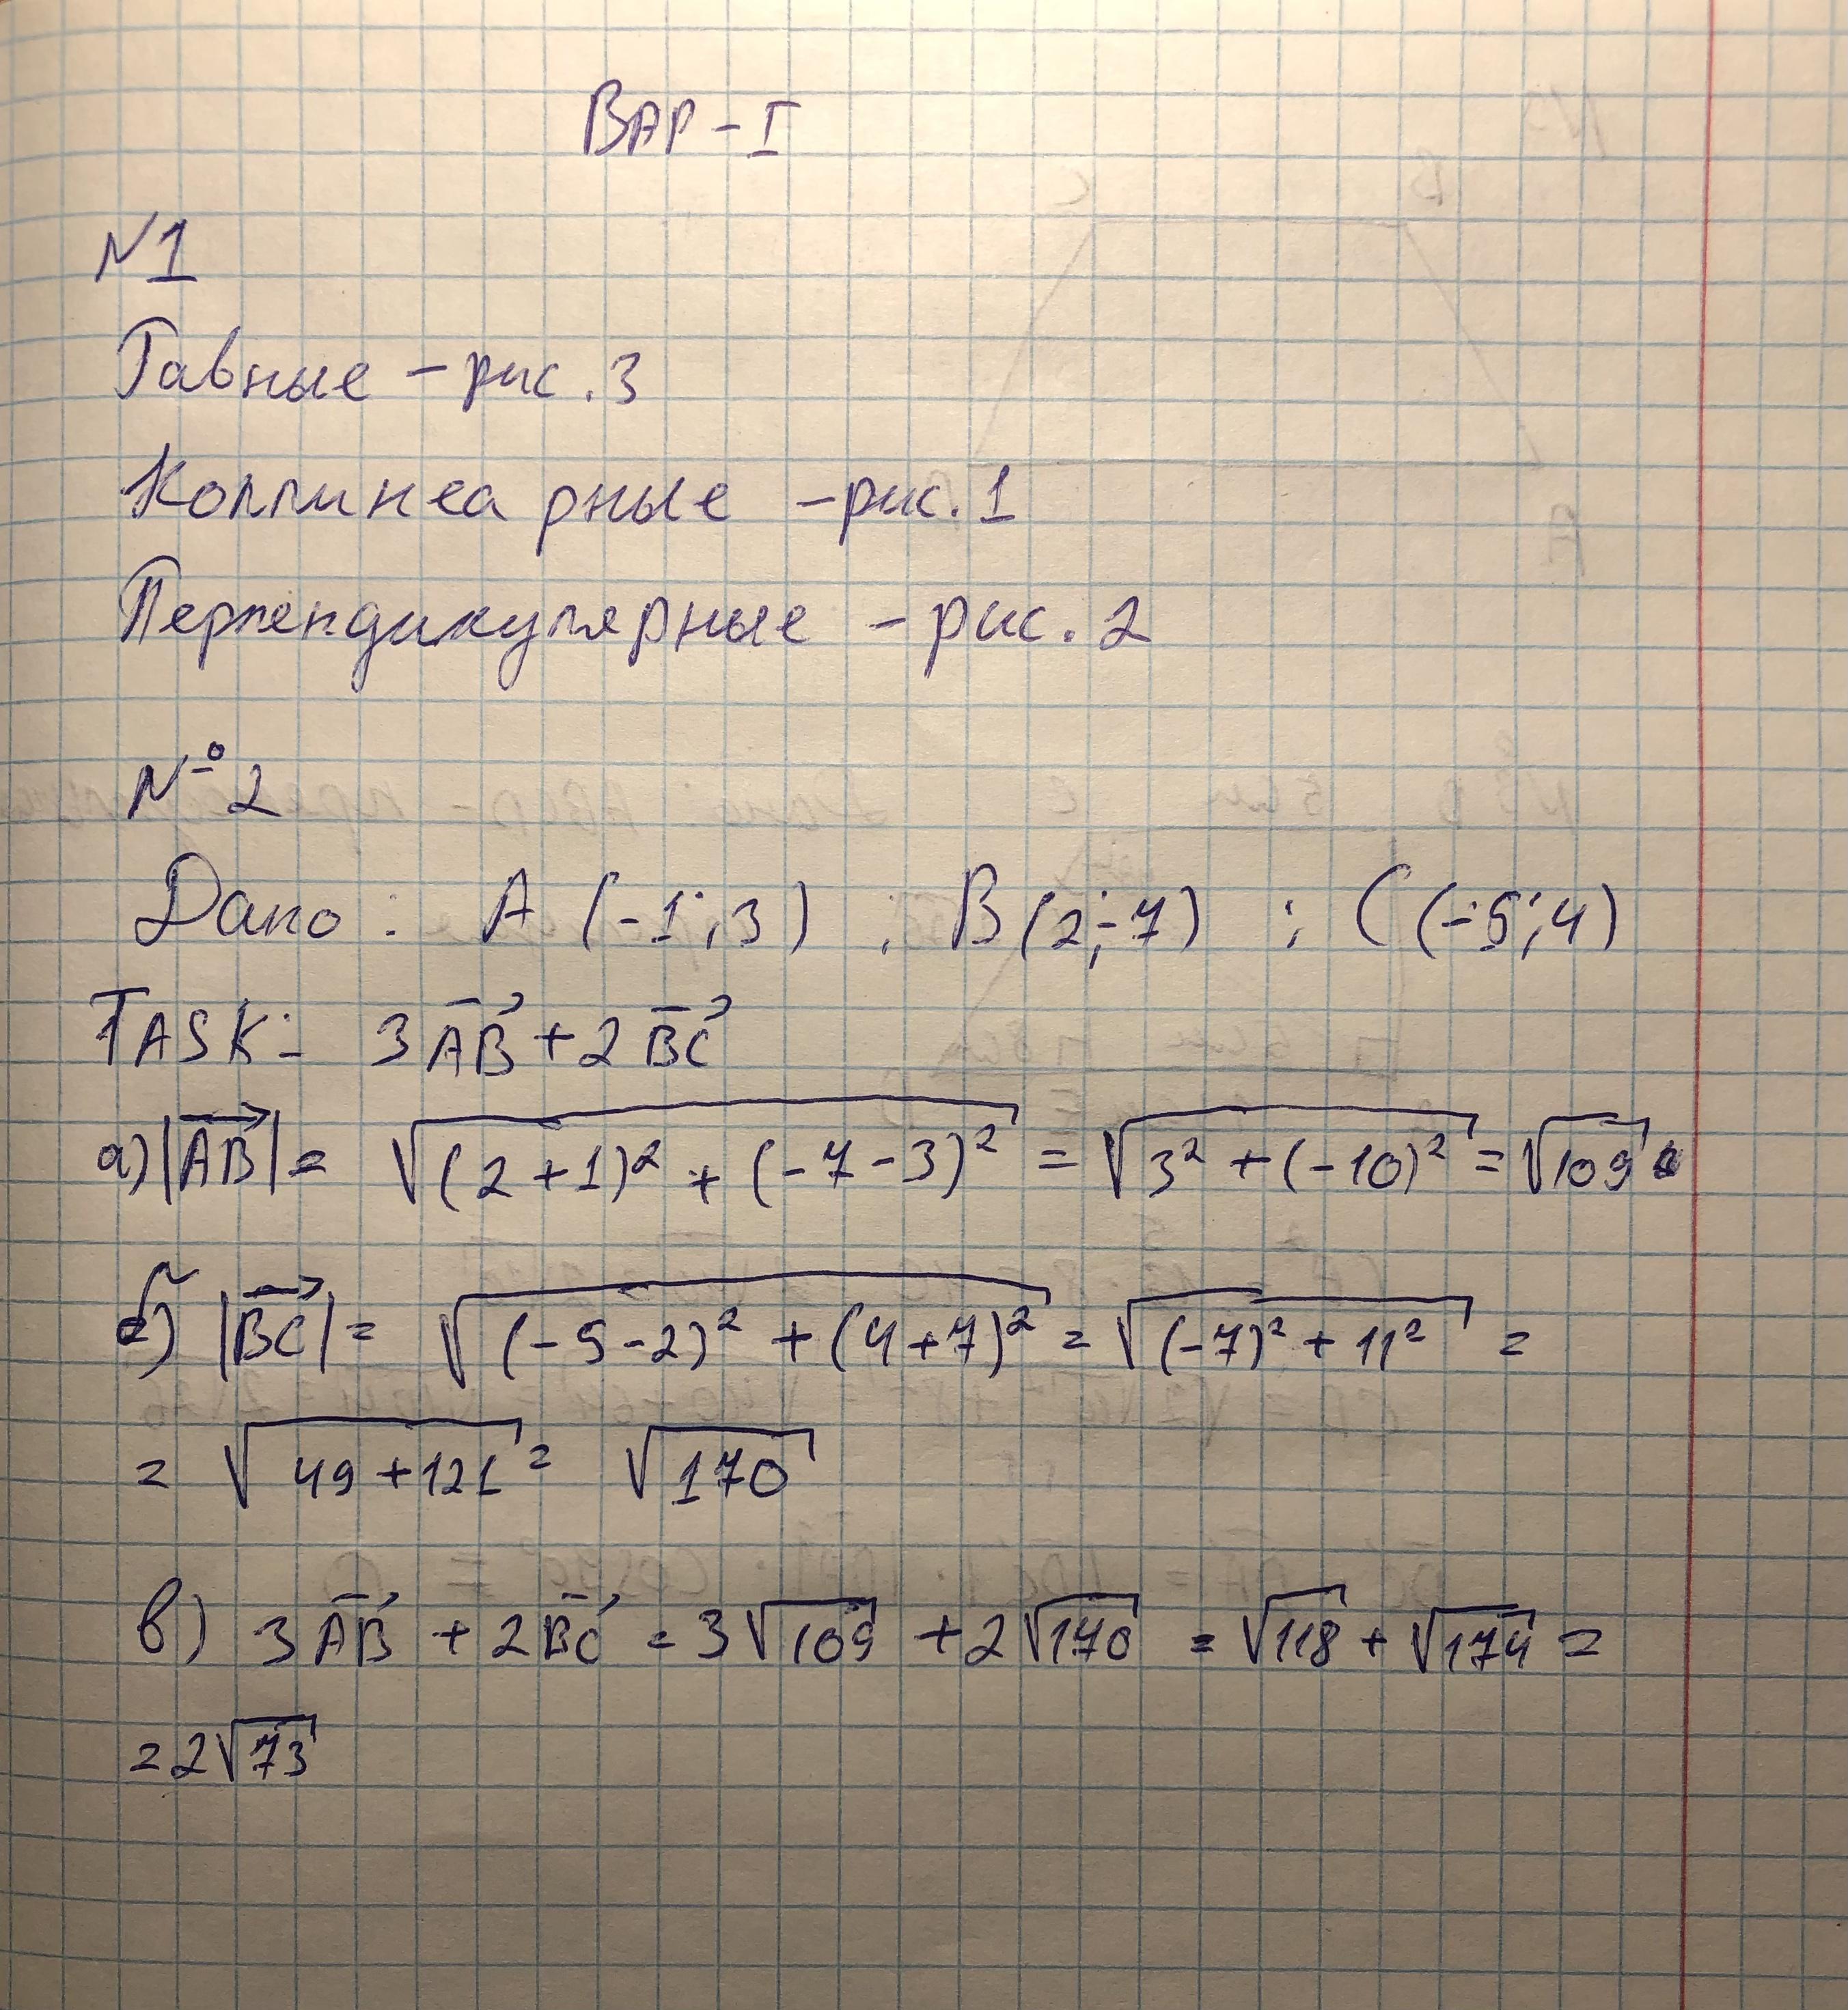 ВАР - I
N1
Равные - рис. 3
Коллинеарные - рис. 1
Перпендикулярные - рис. 2
№ 2
Дано: A (-1; 3) ; B (2; -7) ; C (-5; 4)
TASK: 3AB + 2BC
а) |AB| = √((2+1)² + (-7-3)²) = √(3² + (-10)²) = √109
б) |BC| = √((-5-2)² + (4+7)²) = √((-7)² + 11²) =
= √(49+121) = √170
в) 3AB + 2BC = 3√109 + 2√170 = √118 + √174 =
= 2√73